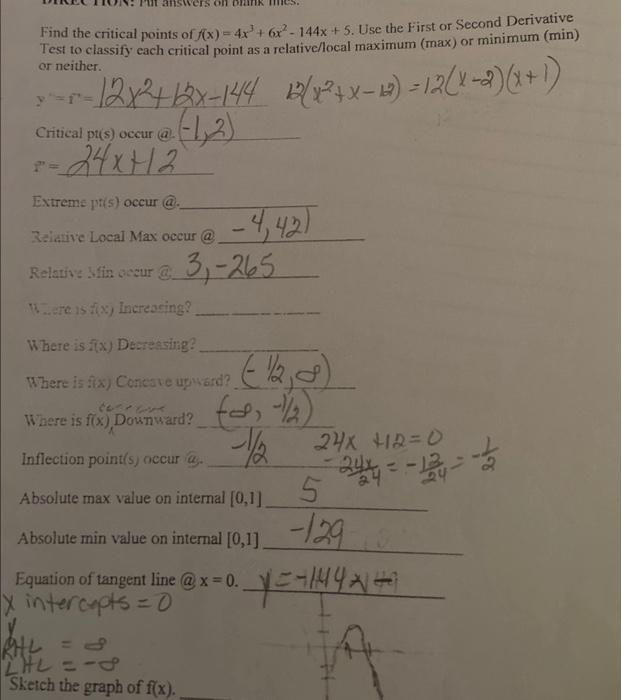 Put answers on blank lines.
Find the critical points of f(x) = 4x³ + 6x² - 144x + 5. Use the First or Second Derivative
Test to classify each critical point as a relative/local maximum (max) or minimum (min)
or neither.
12x²+12x-144 12(x²+x-12) = 12(x-2)(x+1)
Critical pt(s) occur @. (-1,2)
24x+12
Extreme pt(s) occur @.
Relative Local Max occur @ -4,421
Relative Min occur @ 3,-265
Where is f(x) Increasing?
Where is f(x) Decreasing?
Where is f(x) Concave upward? (-1/2, ∞)
concave
Where is f(x) Downward? (-∞, -1/2)
Inflection point(s) occur @. -1/2 24x +12=0
-24x/24 = -12/24 = -1/2
Absolute max value on internal [0,1] 5
Absolute min value on internal [0,1] -129
Equation of tangent line @ x = 0. y=-144x+
X intercepts = 0
y
RHL = ∞
LHL = -∞
Sketch the graph of f(x).